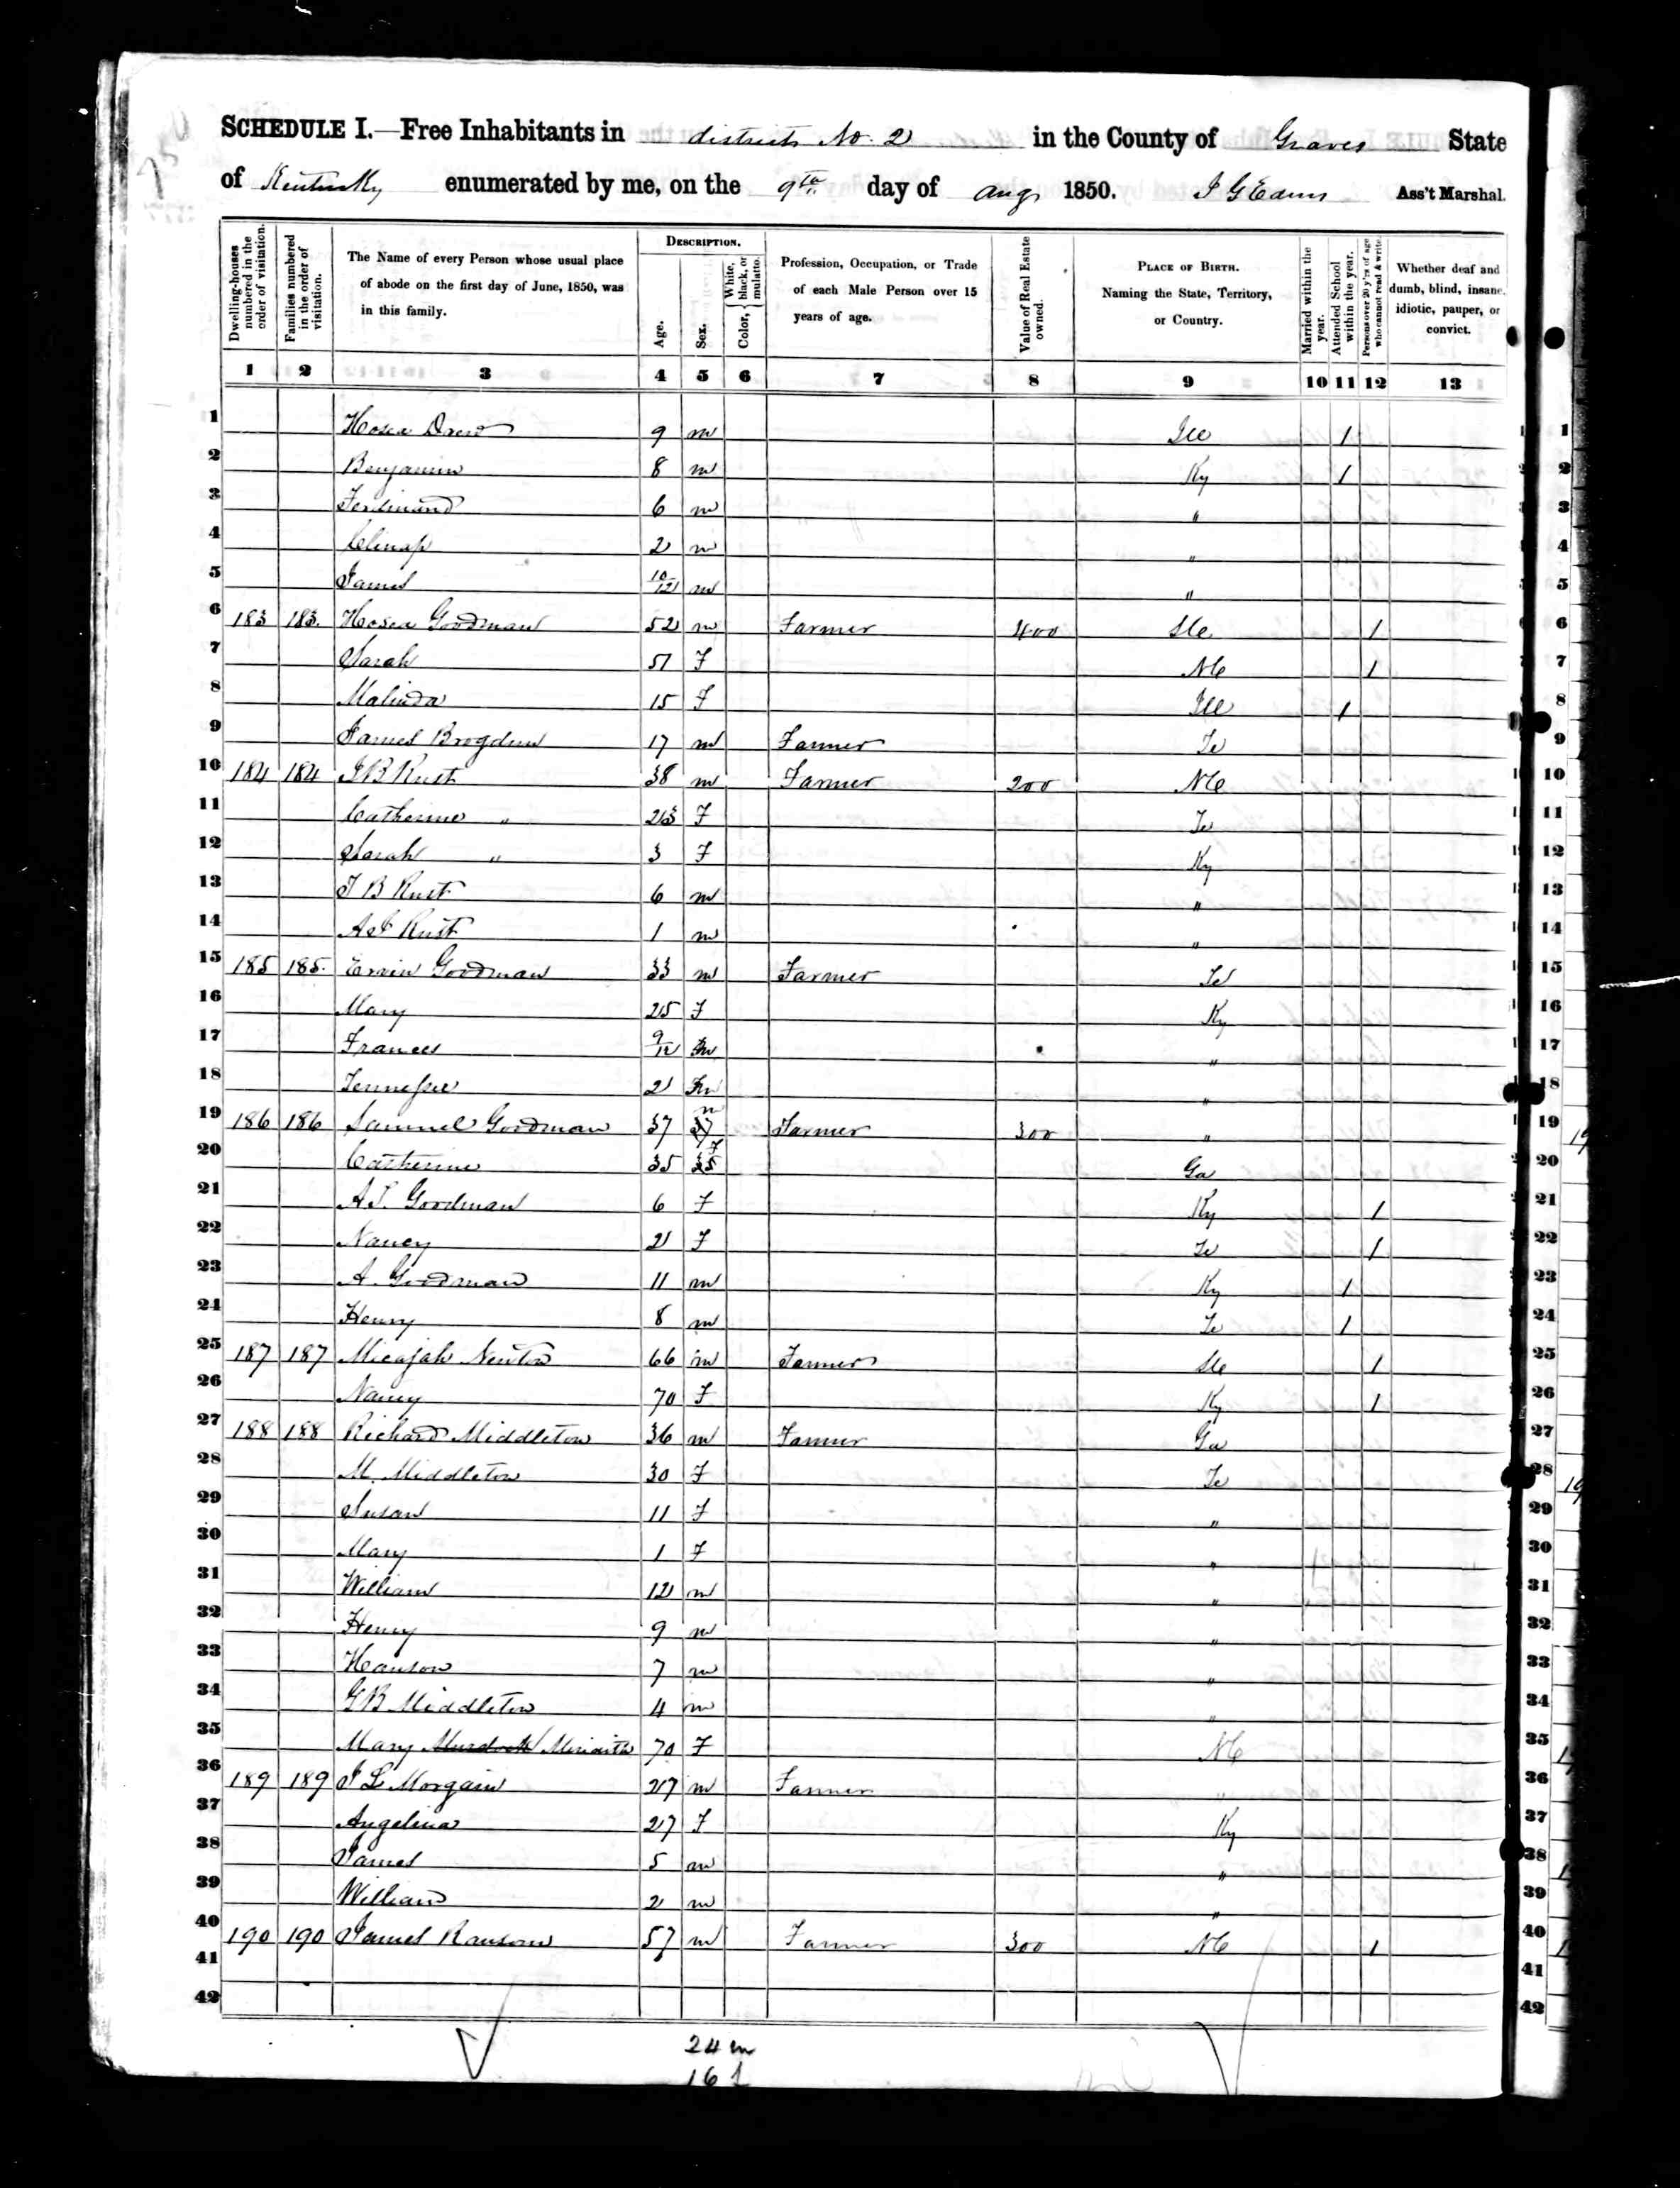 SCHEDULE I.—Free Inhabitants in district No. 2 in the County of Graves State
of Kentucky enumerated by me, on the 9th day of Aug 1850. Ass't Marshal.
Dwelling-houses numbered in the order of visitation. Families numbered in the order of visitation. The Name of every Person whose usual place of abode on the first day of June, 1850, was in this family. DESCRIPTION. Age. Sex. Color, { White, black, or mulatto. Profession, Occupation, or Trade of each Male Person over 15 years of age. Value of Real Estate owned. PLACE OF BIRTH. Naming the State, Territory, or Country. Married within the year. Attended School within the year. Persons over 20 y'rs of age who cannot read & write. Whether deaf and dumb, blind, insane, idiotic, pauper, or convict.
1 2 3 4 5 6 7 8 9 10 11 12 13
1 Hosea Drew 9 m Ill 1 1
2 Benjamin 8 m Ky 1 2
3 Ferdinand 6 m " 3
4 2 m " 4
5 James 10/12 m " 5
6 183 183 Hosea Goodman 52 m Farmer 400 1 6
7 Sarah 51 F NC 1 7
8 Malinda 15 F Ill 1 8
9 James Brogdun 17 m Farmer Te 9
10 184 184 J B Rust 38 m Farmer 200 NC 10
11 Catherine " 23 F Te 11
12 Sarah " 3 F Ky 12
13 J B Rust 6 m " 13
14 Rust 1 m " 14
15 185 185 Ervin Goodman 33 m Farmer Te 15
16 Mary 25 F Ky 16
17 Frances 9/12 " 17
18 Tennessee 2 " 18
19 186 186 Samuel Goodman 37 m Farmer 300 " 19
20 Catherine 35 F Ga 20
21 A. T. Goodman 6 F Ky 1 21
22 Nancy 21 F Te 1 22
23 A. Goodman 11 m Ky 1 23
24 Henry 8 m Te 1 24
25 187 187 Micajah Newton 66 m Farmer 1 25
26 Nancy 70 F Ky 1 26
27 188 188 Richard Middleton 36 m Farmer Ga 27
28 M. Middleton 30 F Te 28
29 Susan 11 F " 29
30 Mary 1 F " 30
31 William 12 m " 31
32 Henry 9 m " 32
33 Hanson 7 m " 33
34 G B Middleton 4 m " 34
35 Mary Murdock 70 F NC 35
36 189 189 J L Morgain 27 m Farmer " 36
37 Angelina 27 F Ky 37
38 James 5 m " 38
39 William 2 m " 39
40 190 190 James Ransom 57 m Farmer 300 NC 1 40
41 41
42 42
24 m
16 f